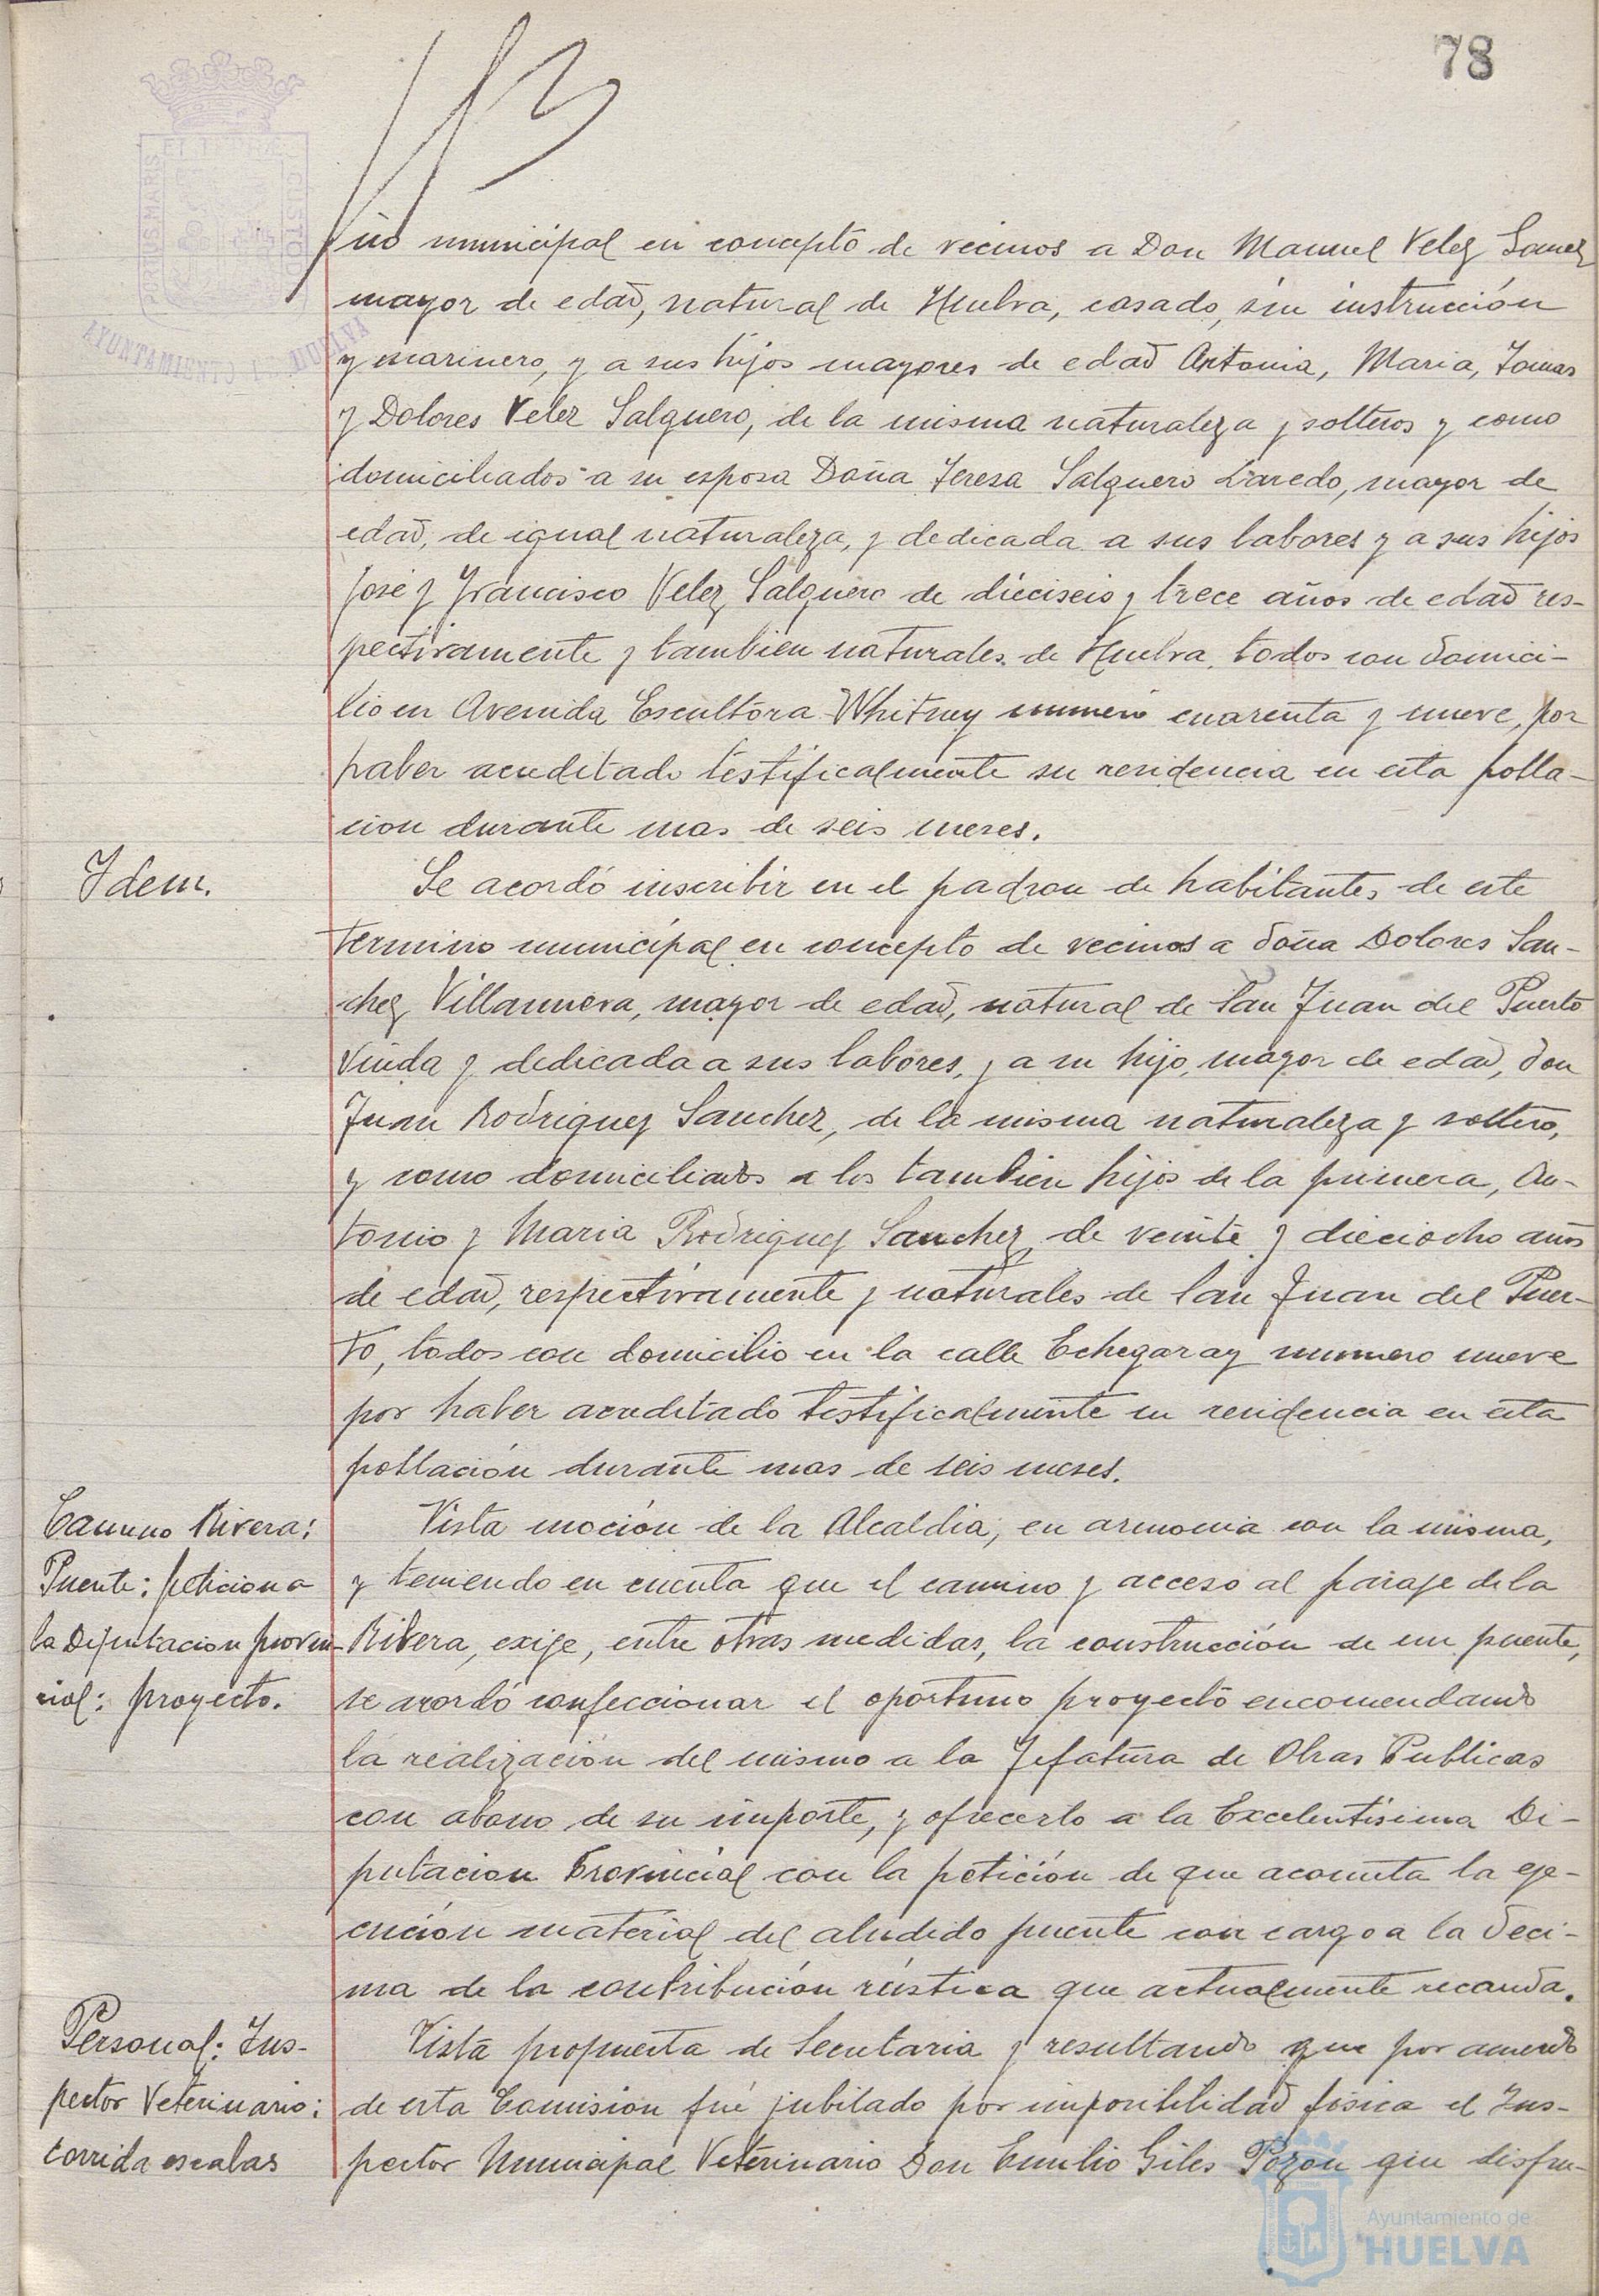 78
PORTUS MARIS ET TERRAE CUSTODIA
AYUNTAMIENTO HUELVA
no municipal en concepto de vecinos a Don Manuel Velez Sanez
mayor de edad, natural de Huelva, casado, sin instrucción
y marinero, y a sus hijos mayores de edad Antonia, Maria, Tomas
y Dolores Velez Salguero, de la misma naturaleza y solteros y como
domiciliados a su esposa Doña Teresa Salguero Laredo, mayor de
edad, de igual naturaleza, y dedicada a sus labores y a sus hijos
José y Francisco Velez Salguero de dieciseis y trece años de edad res-
pectivamente y tambien naturales de Huelva, todos con domici-
lio en Avenida Escultora Whitney numero cuarenta y nueve, por
haber acreditado testificalmente su residencia en esta pobla-
cion durante mas de seis meses.
Idem.
Se acordó inscribir en el padron de habitantes de este
termino municipal en concepto de vecinos a doña Dolores San-
chez Villanueva, mayor de edad, natural de San Juan del Puerto
viuda y dedicada a sus labores, y a su hijo, mayor de edad, don
Juan Rodriguez Sanchez, de la misma naturaleza y soltero,
y como domiciliados a los tambien hijos de la primera, An-
tonio y Maria Rodriguez Sanchez, de veinte y dieciocho años
de edad, respectivamente y naturales de San Juan del Puer-
to, todos con domicilio en la calle Echegaray numero nueve
por haber acreditado testificalmente su residencia en esta
población durante mas de seis meses.
Camino Rivera:
Puente: peticion a
la Diputacion provin-
cial: proyecto.
Vista moción de la Alcaldia, en armonia con la misma,
y teniendo en cuenta que el camino y acceso al paraje de la
Ribera, exije, entre otras medidas, la construcción de un puente,
se acordó confeccionar el oportuno proyecto encomendando
la realización del mismo a la Jefatura de Obras Publicas
con abono de su importe, y ofrecerlo a la Excelentísima Di-
putacion Provincial con la petición de que acometa la eje-
cución material del aludido puente con cargo a la deci-
ma de la contribución rústica que actualmente recauda.
Personal: Ins-
pector Veterinario:
corrida escalas
Vista propuesta de Secretaria y resultando que por acuerdo
de esta Comisión fué jubilado por imposibilidad fisica el Ins-
pector Municipal Veterinario Don Emilio Giles Pozón que disfru-
Ayuntamiento de
HUELVA